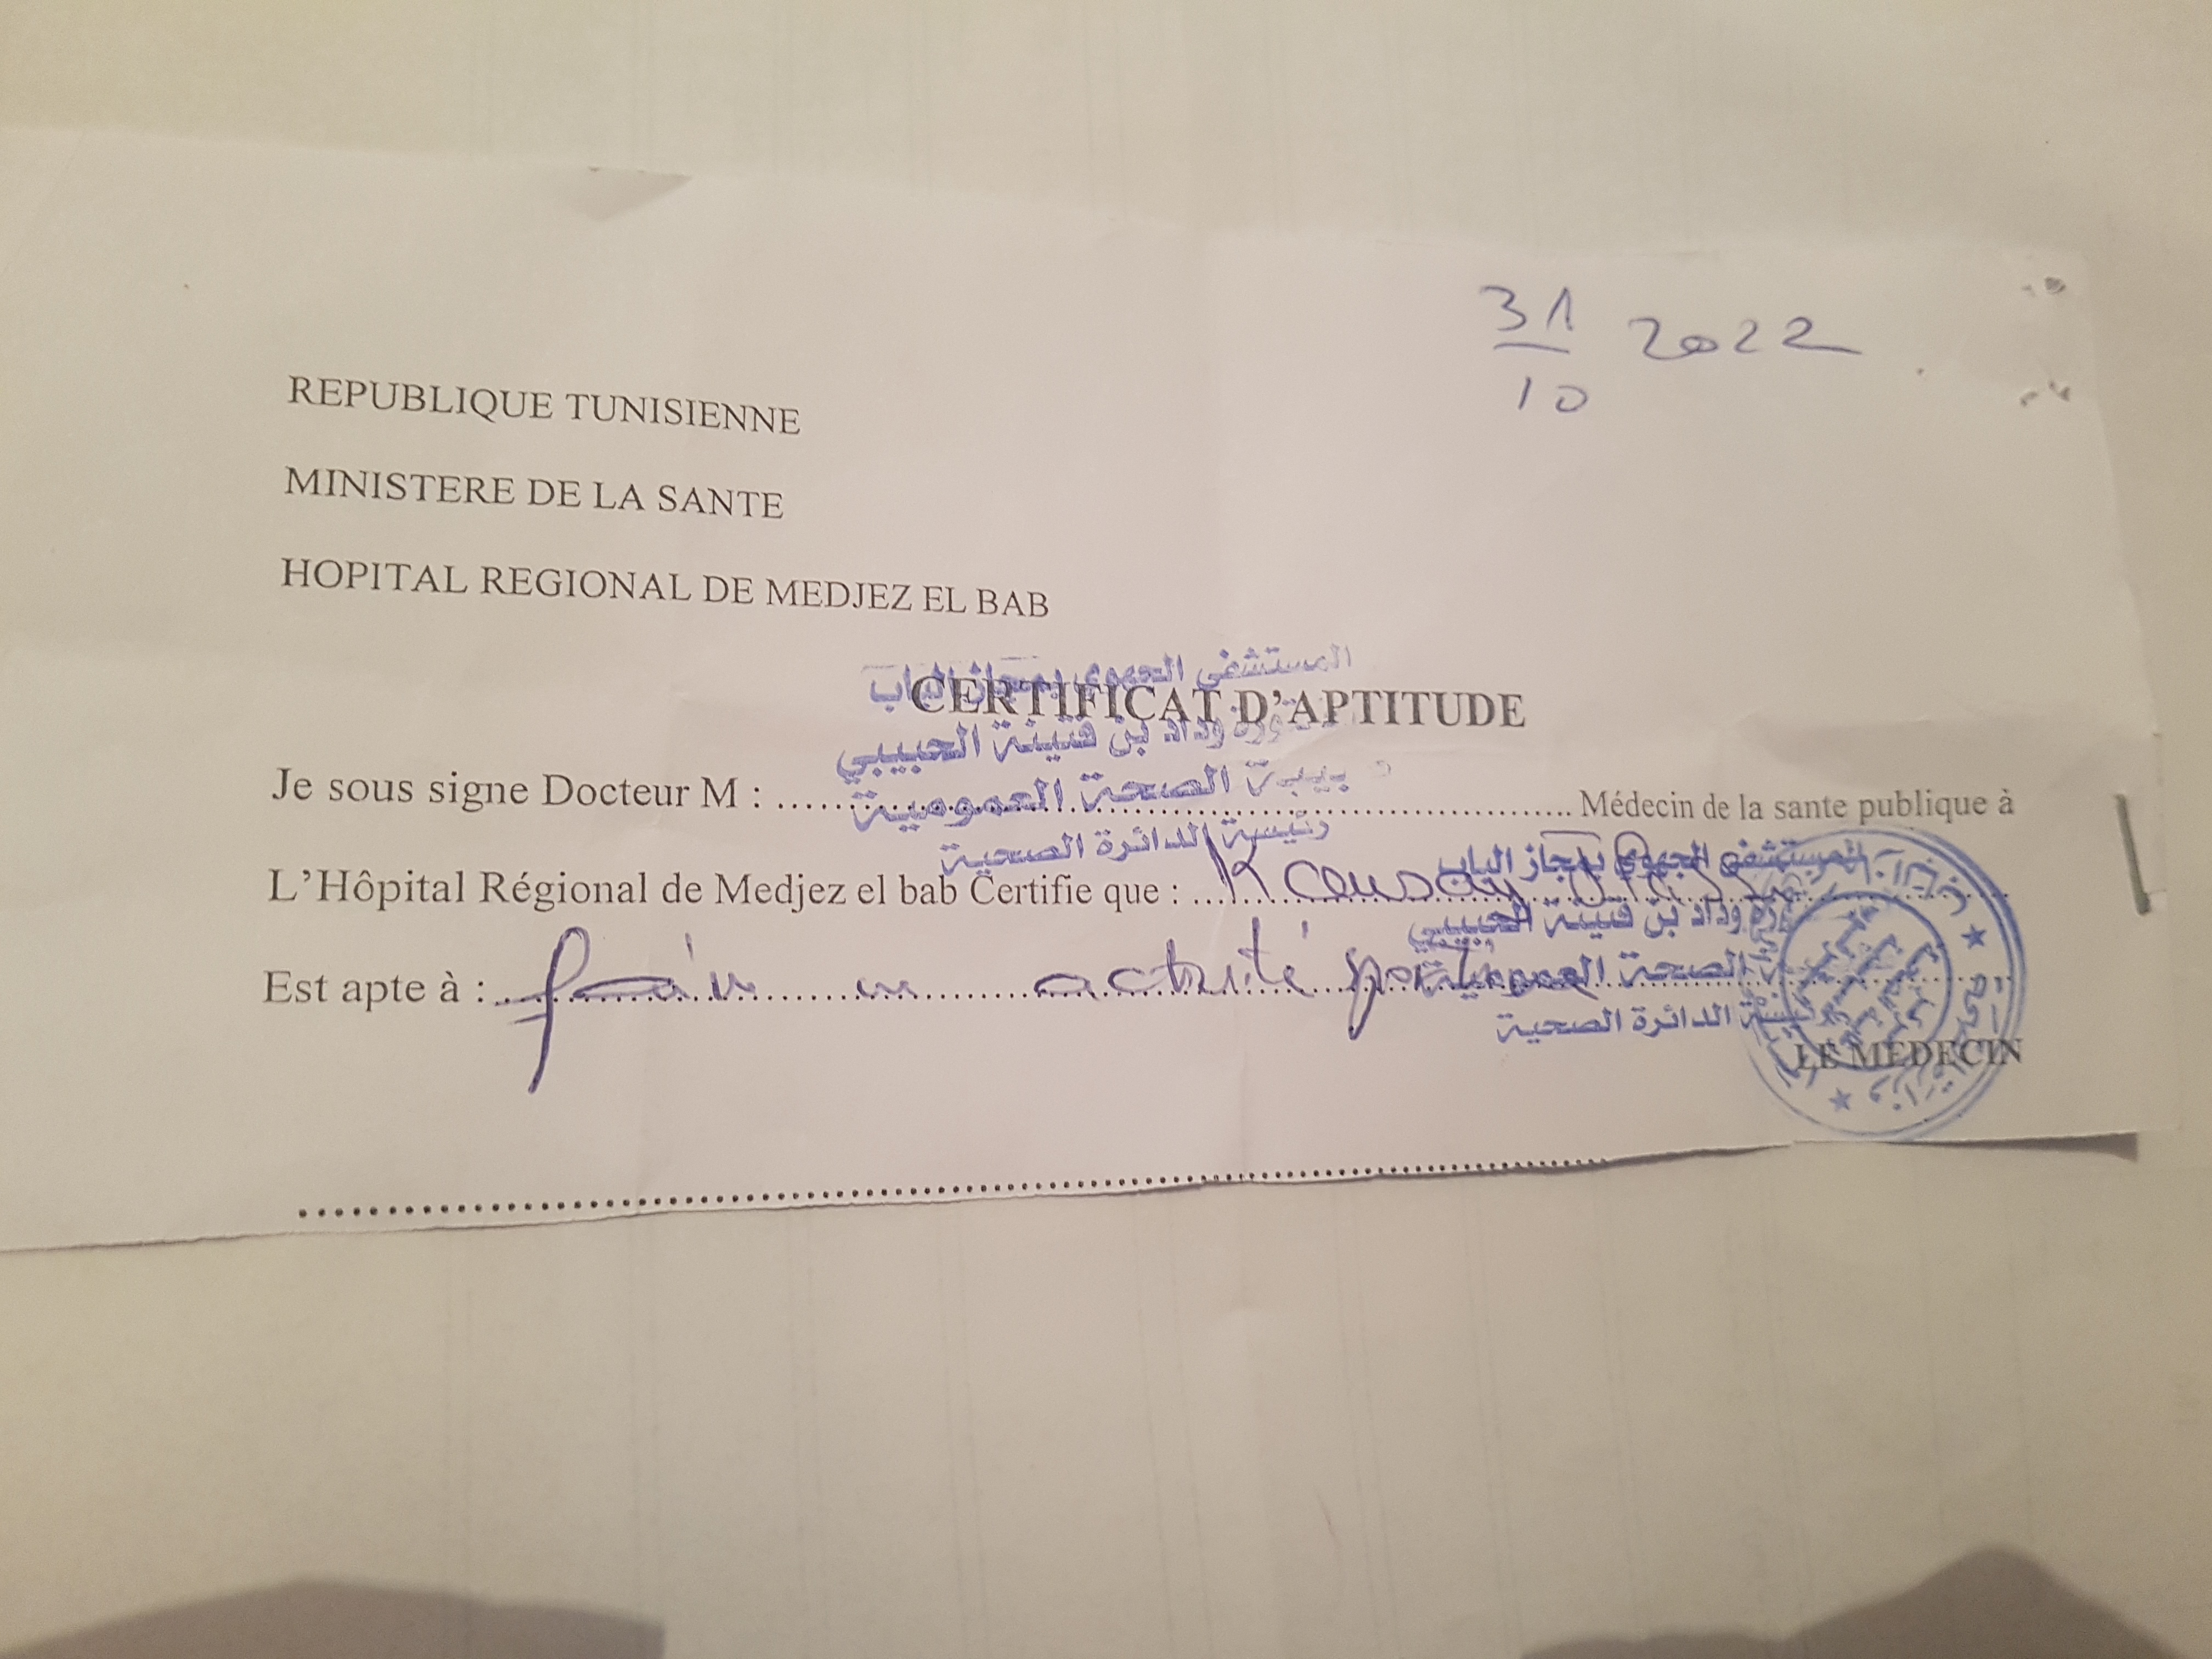 31/10 2022
REPUBLIQUE TUNISIENNE
MINISTERE DE LA SANTE
HOPITAL REGIONAL DE MEDJEZ EL BAB
المستشفى الجهوي بمجاز الباب
CERTIFICAT D'APTITUDE
وداد بن قنينة الحبيبي
الصحة العمومية
Je sous signe Docteur M : Médecin de la sante publique à
رئيسة الدائرة الصحية
المستشفى الجهوي بمجاز الباب
L'Hôpital Régional de Medjez el bab Certifie que :
وداد بن قنينة الحبيبي
الصحة العمومية
Est apte à : activité
رئيسة الدائرة الصحية
LE MEDECIN